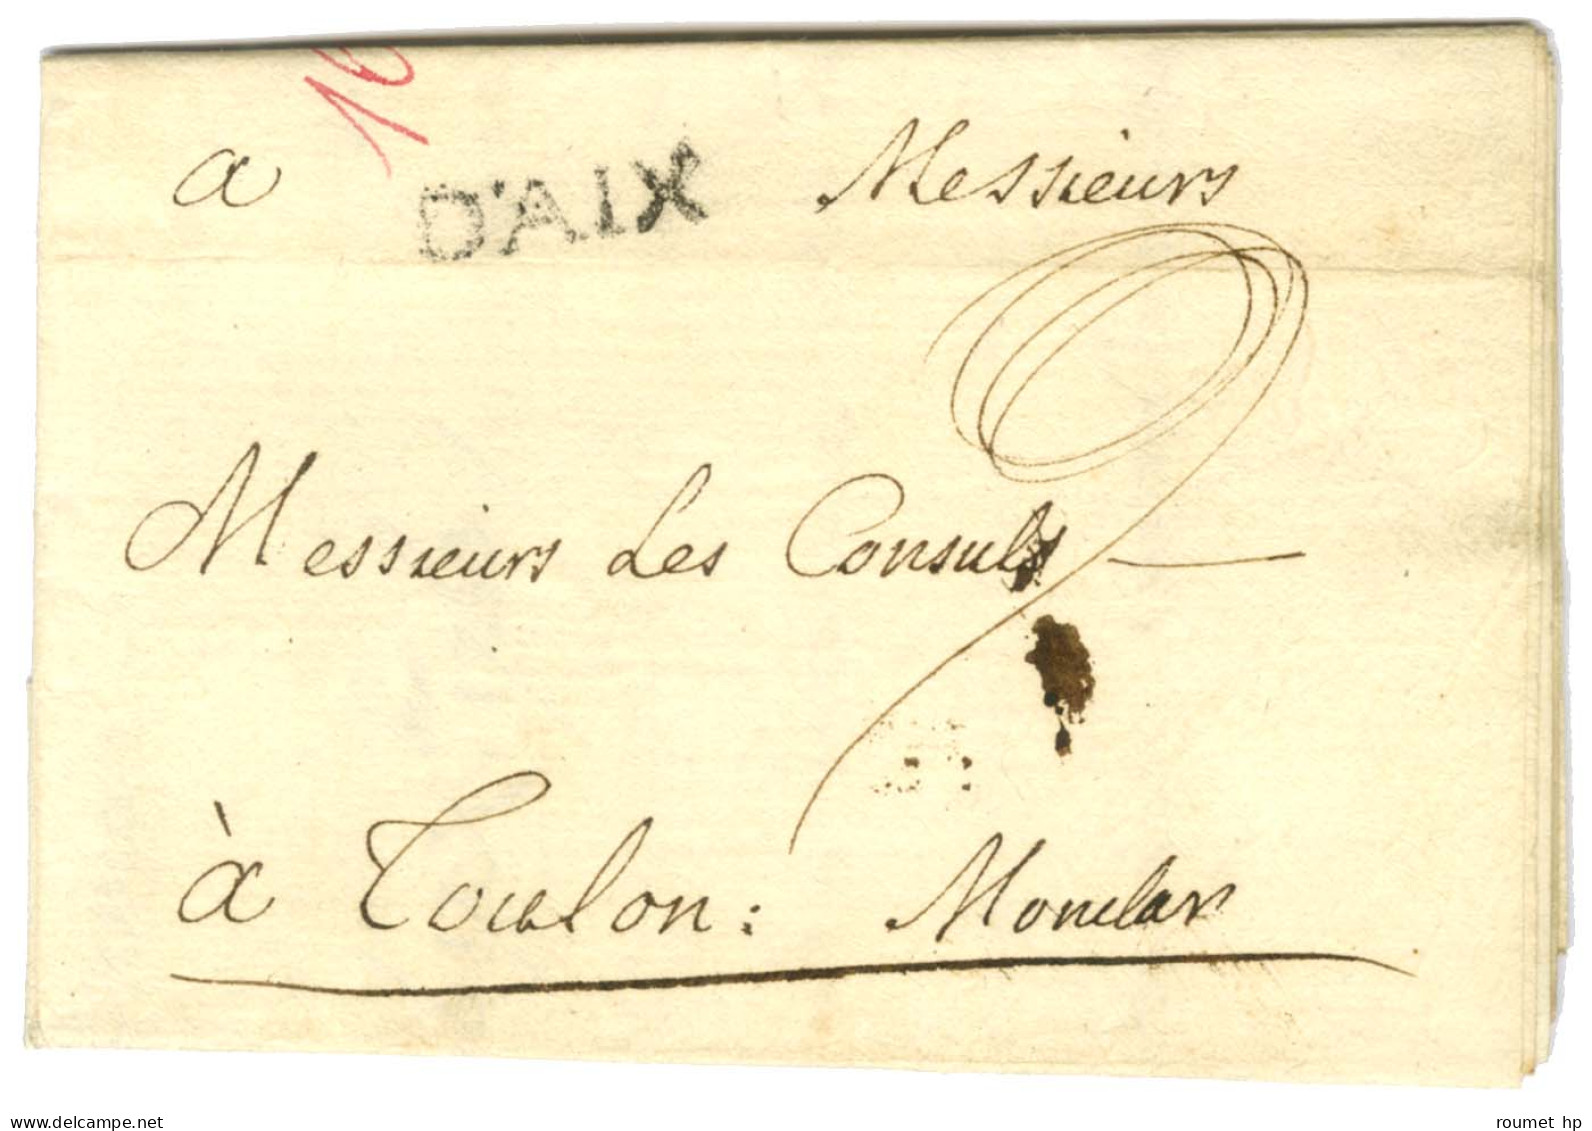 a D'AIX Messieurs
Messieurs Les Consuls
à Toulon: Monclar
www.delcampe.net
roumet hp